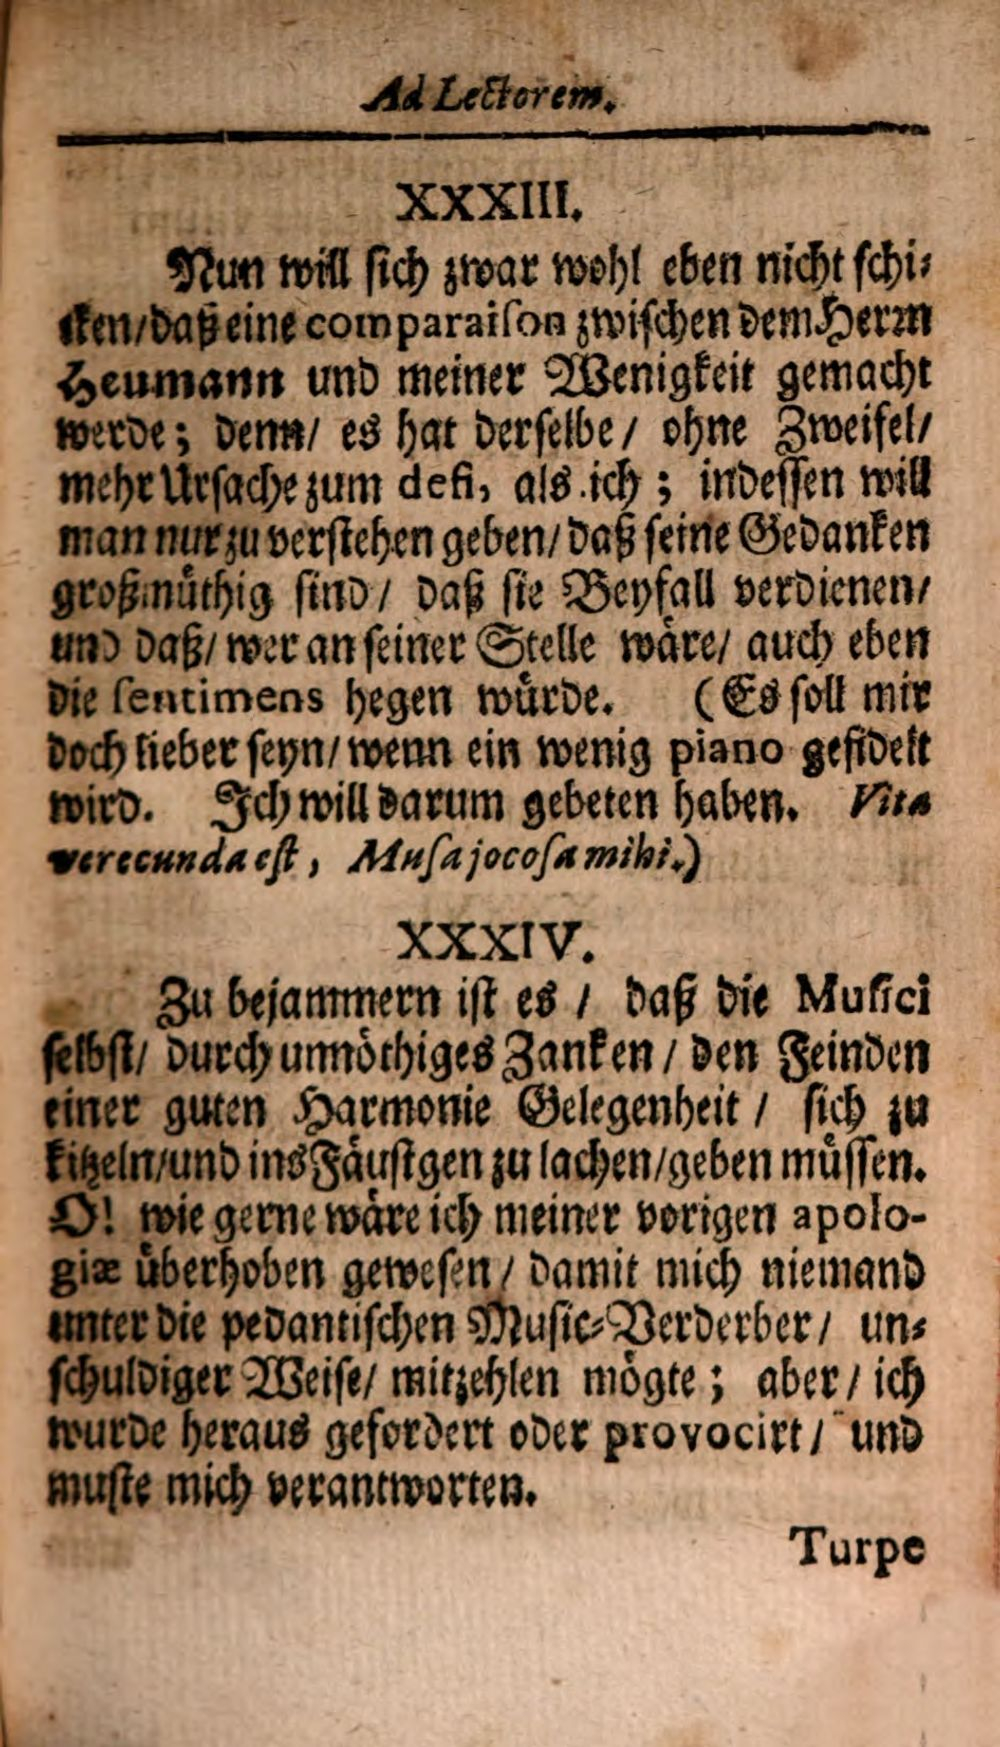 Ad Lectorem.
XXXIII.
Nun will sich zwar wohl eben nicht schi-
cken/ daß eine comparaison zwischen dem Herrn
Heumann und meiner Wenigkeit gemacht
werde; denn/ es hat derselbe/ ohne Zweifel/
mehr Ursache zum defi, als ich; indessen will
man nur zu verstehen geben/ daß seine Gedanken
großmüthig sind/ daß sie Beyfall verdienen/
und daß/ wer an seiner Stelle wäre/ auch eben
die sentimens hegen würde. (Es soll mir
doch lieber seyn/ wenn ein wenig piano gefidelt
wird. Ich will darum gebeten haben. Vita
verecunda est, Musa jocosa mihi.)
XXXIV.
Zu bejammern ist es / daß die Musici
selbst/ durch unnöthiges Zanken / den Feinden
einer guten Harmonie Gelegenheit / sich zu
kitzeln/ und ins Fäustgen zu lachen/ geben müssen.
O! wie gerne wäre ich meiner vorigen apolo-
giæ überhoben gewesen/ damit mich niemand
unter die pedantischen Music-Verderber/ un-
schuldiger Weise/ mitzehlen mögte; aber/ ich
wurde heraus gefordert oder provocirt/ und
muste mich verantworten.
Turpe